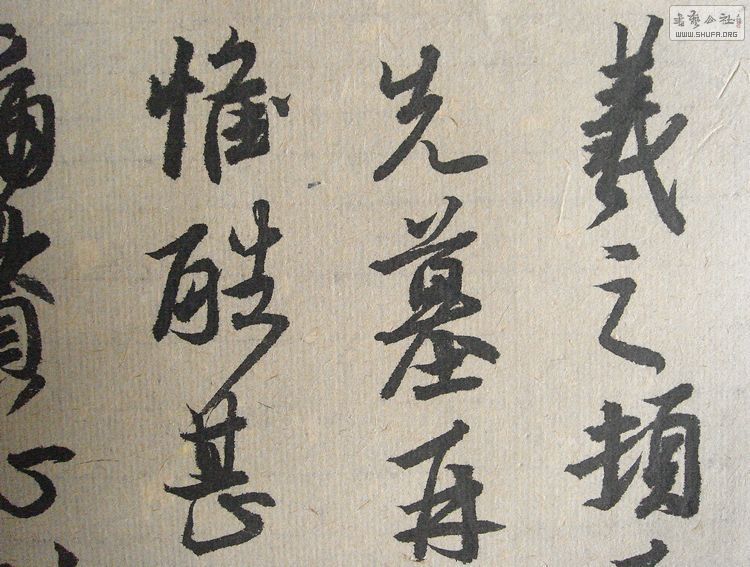 羲之頓
先墓再
惟酷甚
痛貫心
書藝公社
WWW.SHUFA.ORG